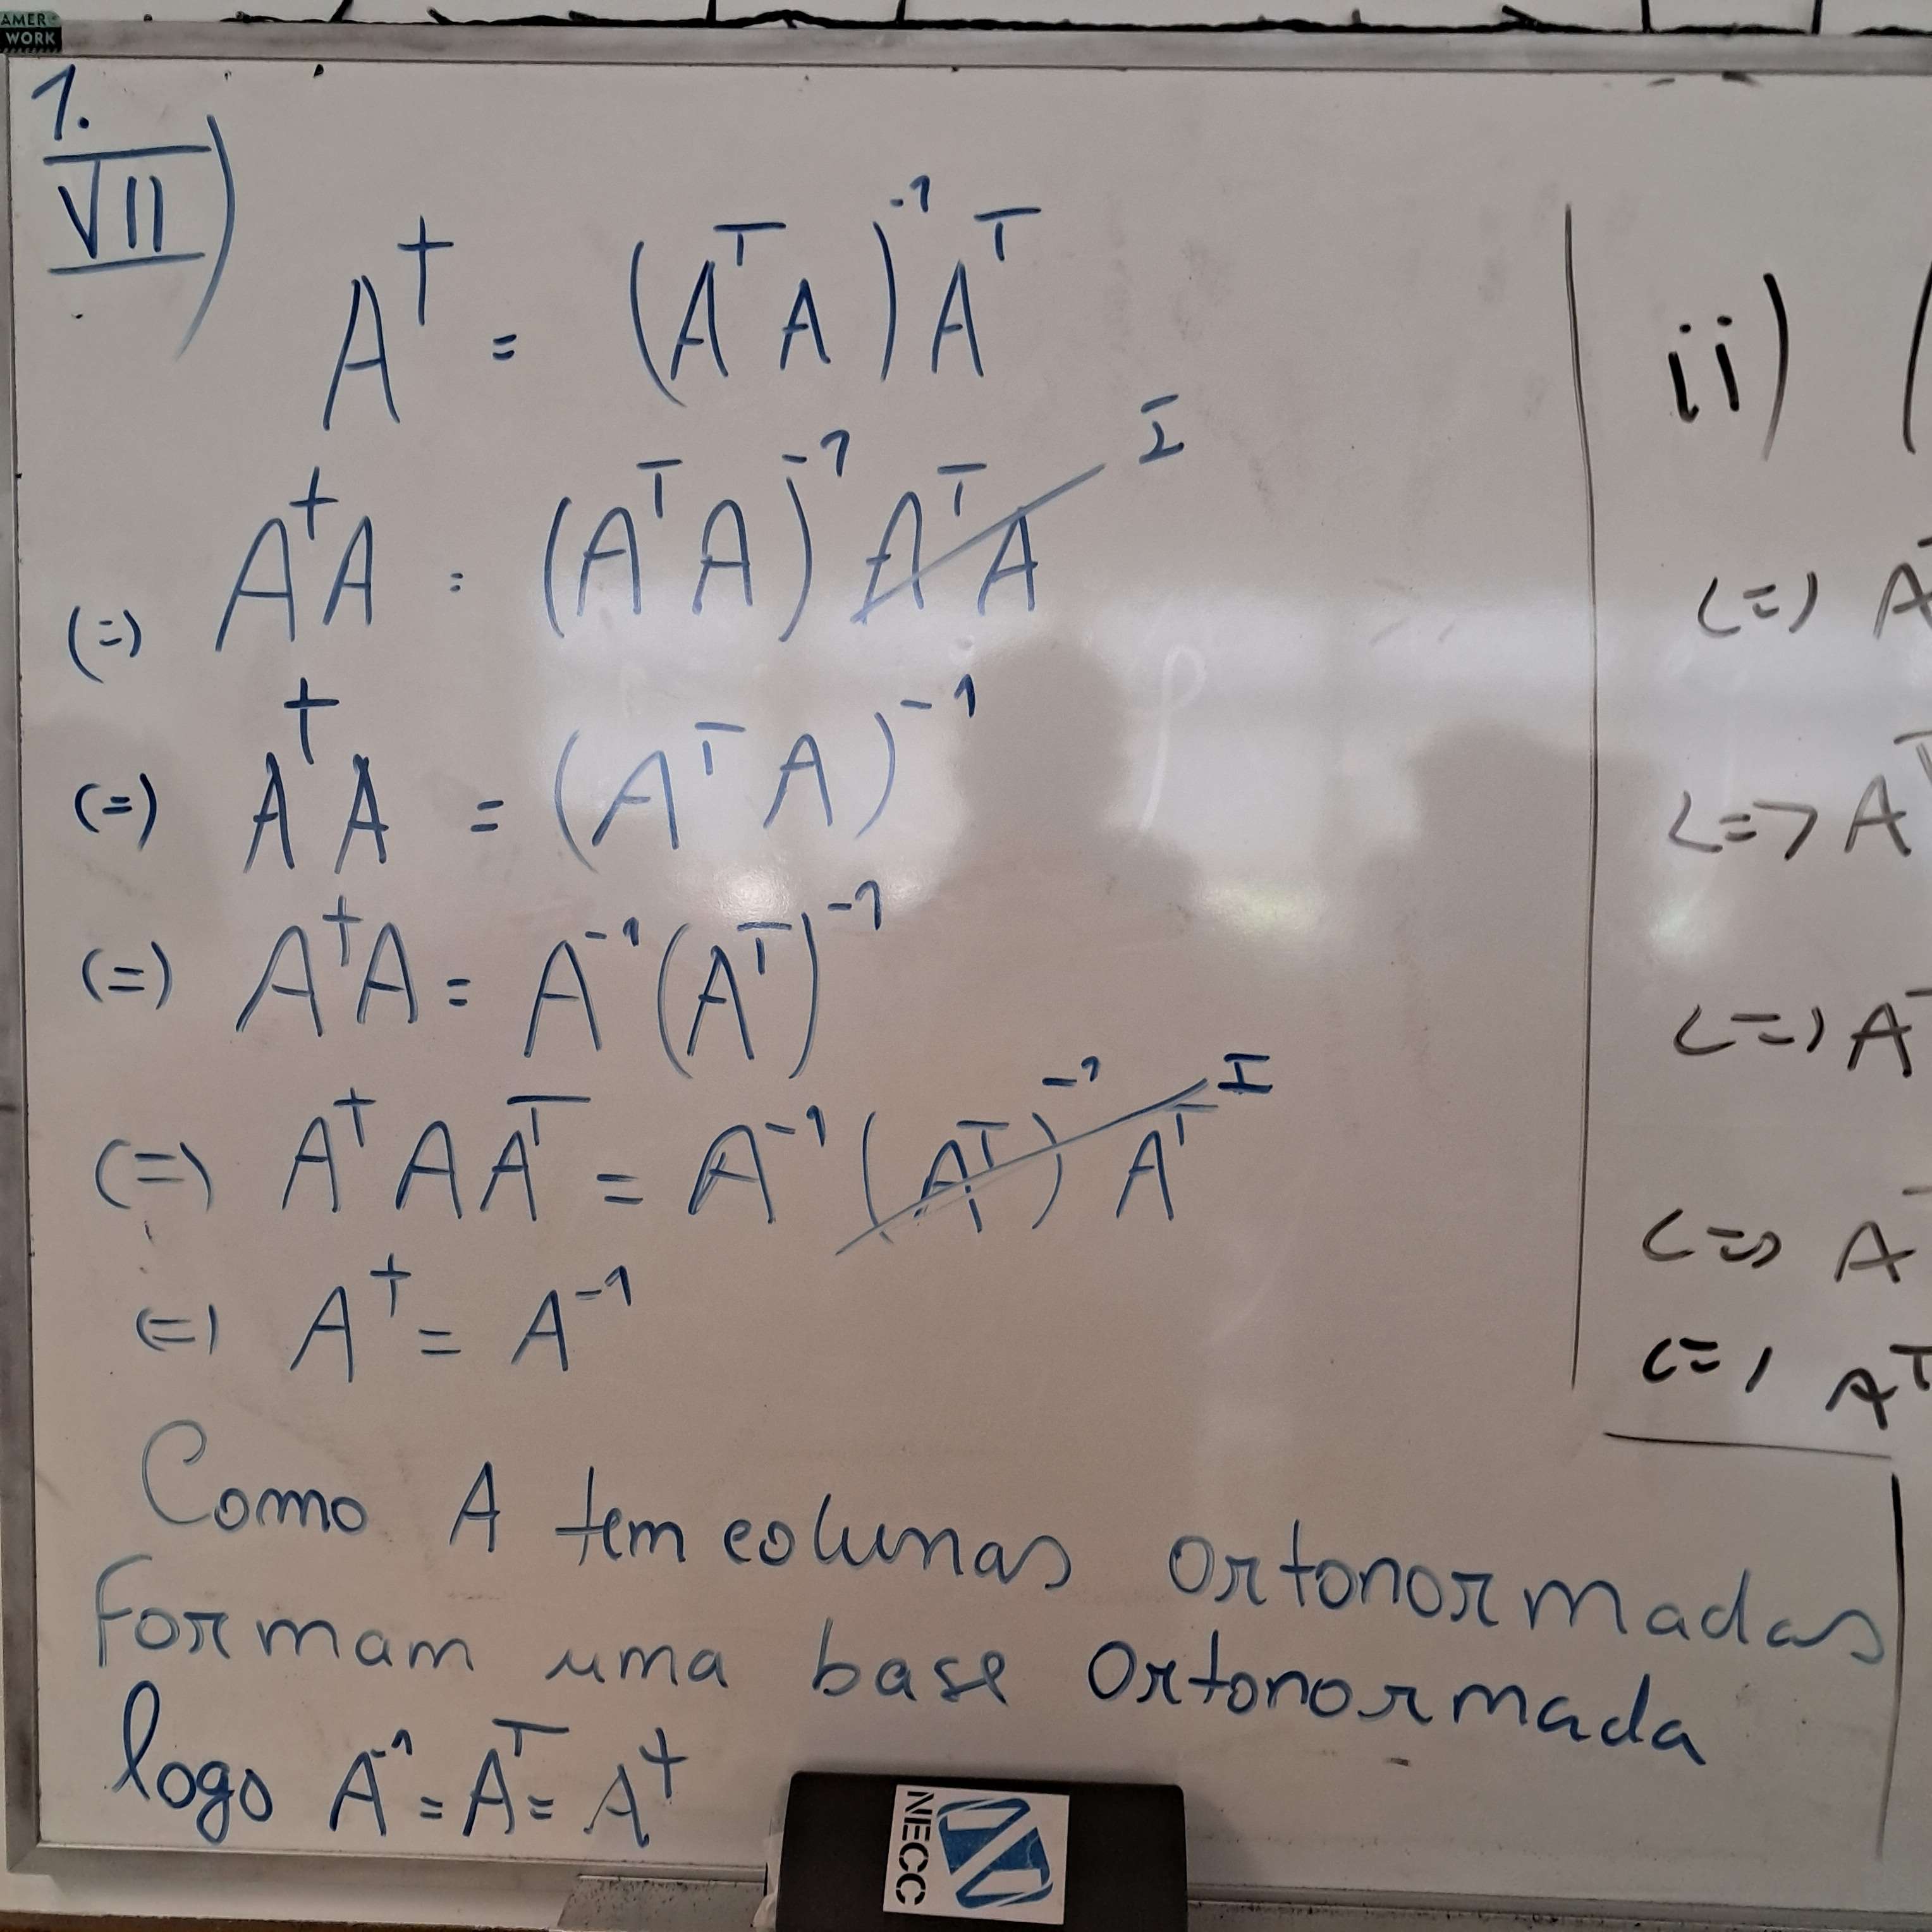 AMER
WORK
1.
VII)
A† = (AᵀA)⁻¹Aᵀ
(=) A†A = (AᵀA)⁻¹AᵀA I
(=) A†A = (AᵀA)⁻¹
(=) A†A = A⁻¹(Aᵀ)⁻¹
(=) A†AAᵀ = A⁻¹(Aᵀ)⁻¹Aᵀ I
(=) A† = A⁻¹
Como A tem colunas ortonormadas
Formam uma base ortonormada
logo A⁻¹ = Aᵀ = A†
ii) (
(=) A
<=> A
<=) Aᵀ
<=> A
(=) Aᵀ
NECC